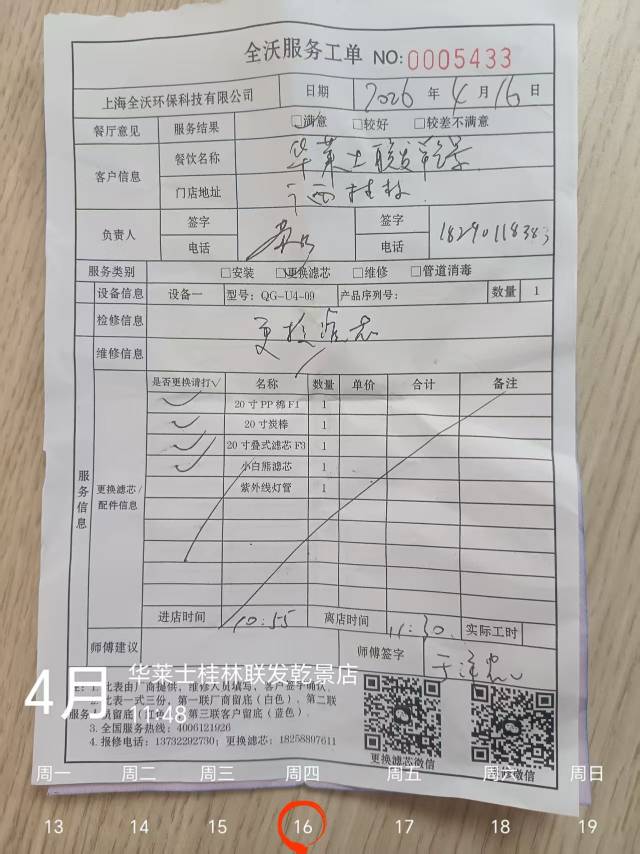 全沃服务工单 NO:0005433
上海全沃环保科技有限公司 日期 2026 年 4 月 16 日
餐厅意见 服务结果 □满意 □较好 □较差不满意
客户信息 餐饮名称 华莱士联发乾景
门店地址 广西桂林
负责人 签字 签字
电话 电话 18290118383
服务类别 □安装 □更换滤芯 □维修 □管道消毒
设备信息 设备一 型号：QG-U4-09 产品序列号： 数量 1
检修信息 更换滤芯
维修信息
服务信息 更换滤芯/配件信息
是否更换请打√ 名称 数量 单价 合计 备注
✓ 20寸PP棉F1 1
✓ 20寸炭棒 1
✓ 20寸叠式滤芯F3 1
✓ 小白熊滤芯 1
紫外线灯管 1
进店时间 10:55 离店时间 11:30 实际工时
师傅建议 师傅签字
华莱士桂林联发乾景店
4月 11:48
注：1. 此表由厂商提供，维修人员填写，客户签字确认。
2. 此表一式三份，第一联厂商留底（白色），第二联
服务人员留底（红色），第三联客户留底（蓝色）。
3. 全国服务热线：4006121926
4. 报修电话：13732292730；更换滤芯：18258897611
更换滤芯微信 微信
周一 周二 周三 周四 周五 周六 周日
13 14 15 16 17 18 19